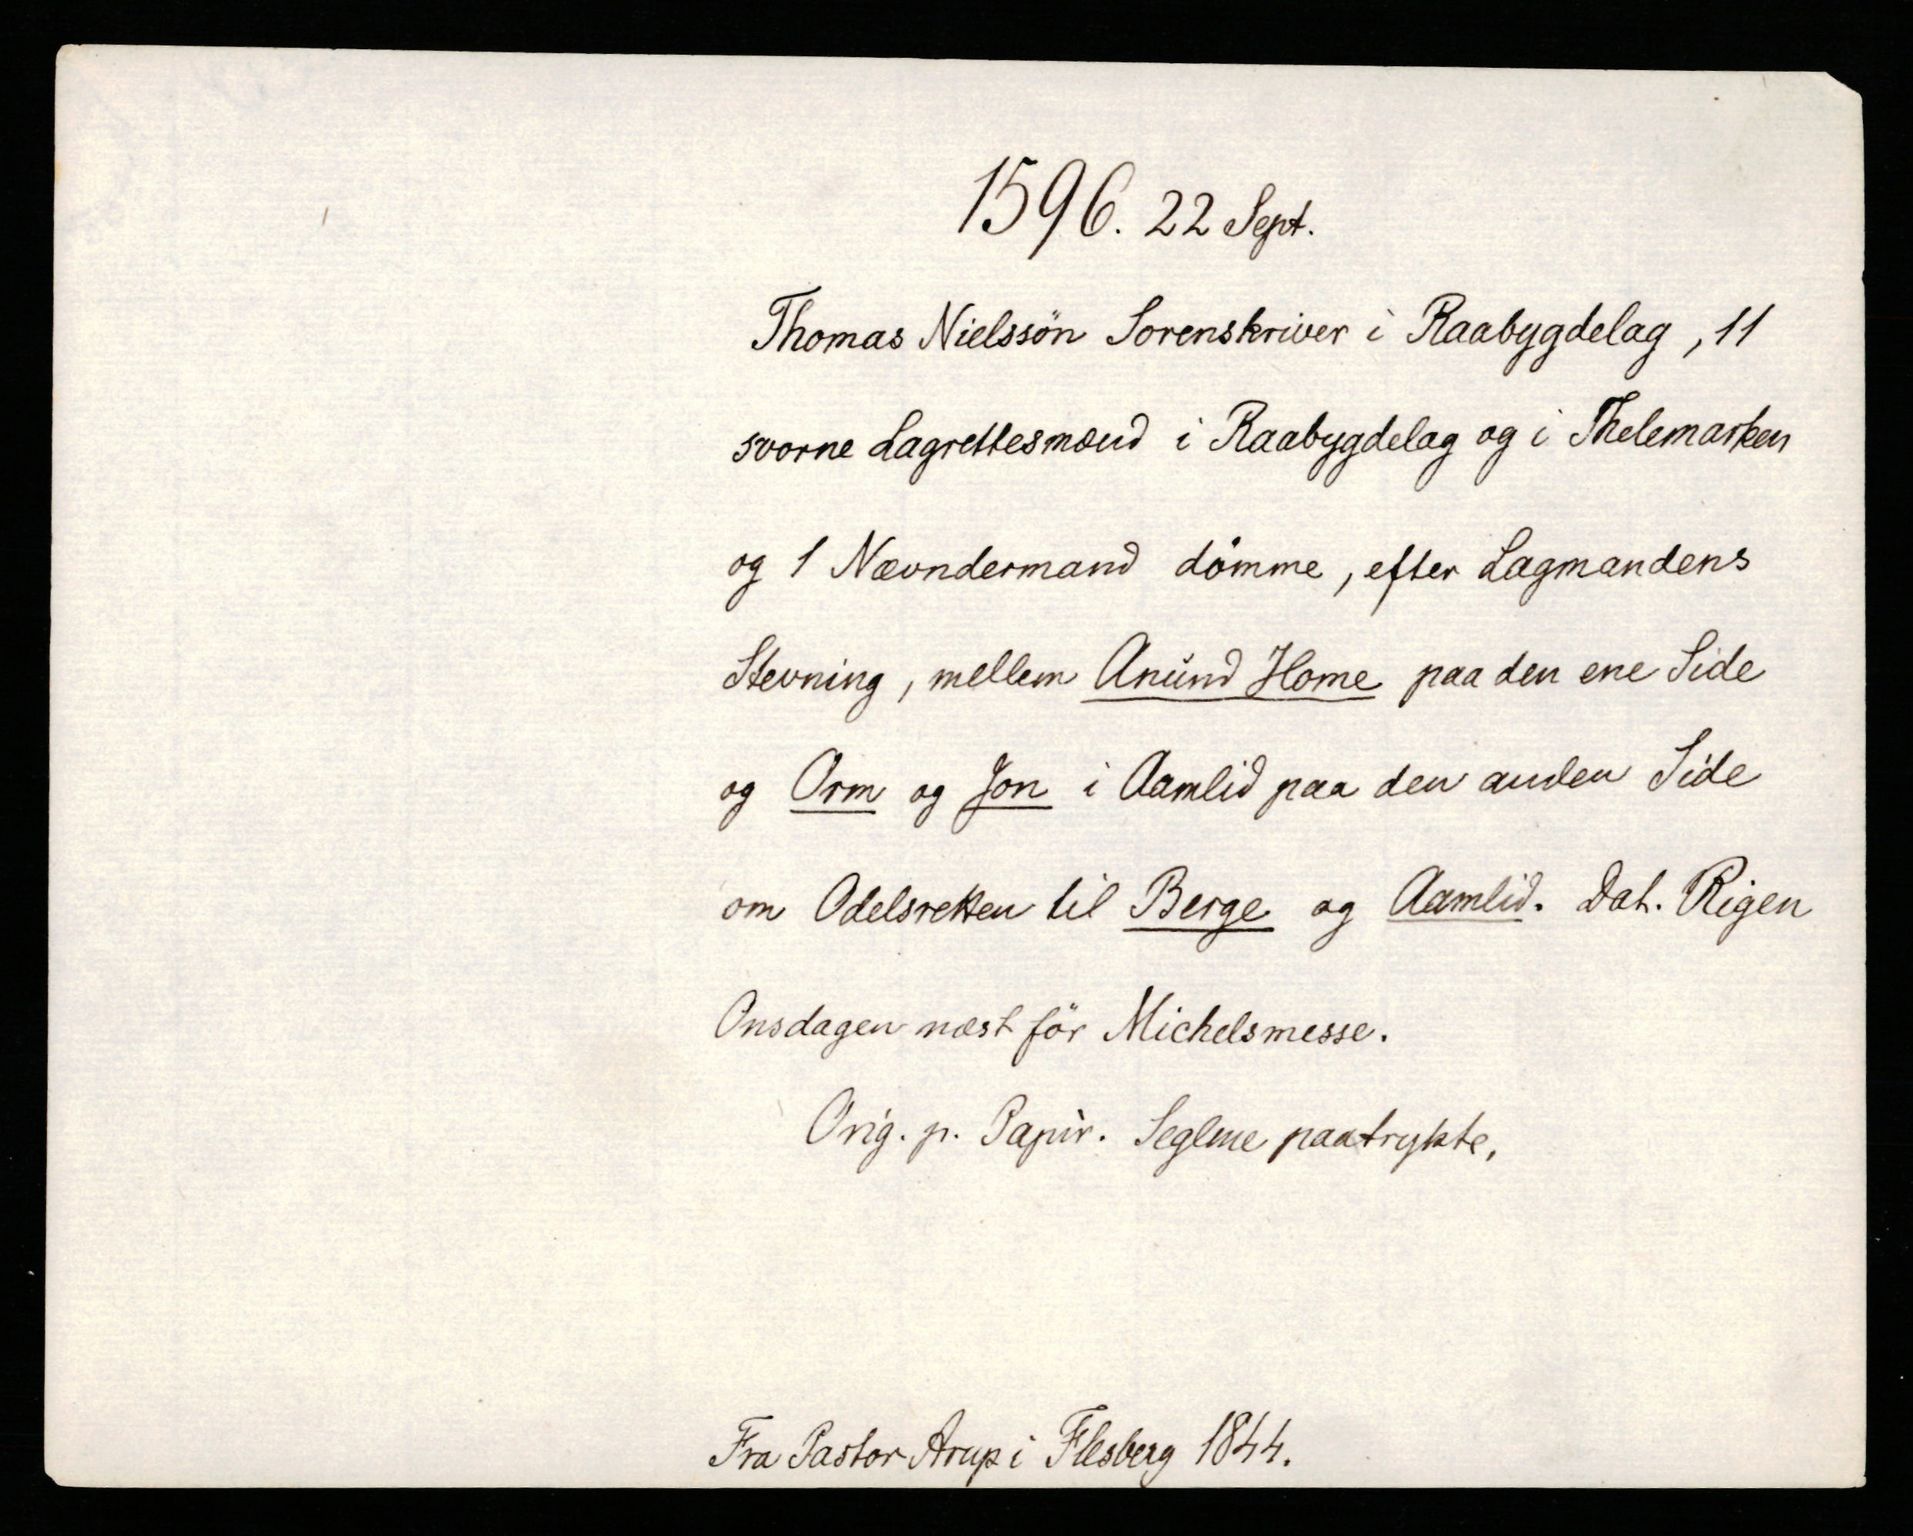 1596. 22 Sept.
Thomas Nielssön Sorenskriver i Raabygdelag, 11
svorne Lagrettesmænd i Raabygdelag og i Thelemarken
og 1 Nævndermand dömme, efter Lagmandens
Stevning, mellem Anund Home paa den ene Side
og Orm og Jon i Aamlid paa den anden Side
om Odelsretten til Berge og Aamlid. Dat. Rigen
Onsdagen næst för Michelsmesse.
Orig. p. Papir. Seglene paatrykte.
Fra Pastor Arup i Flesberg 1844.